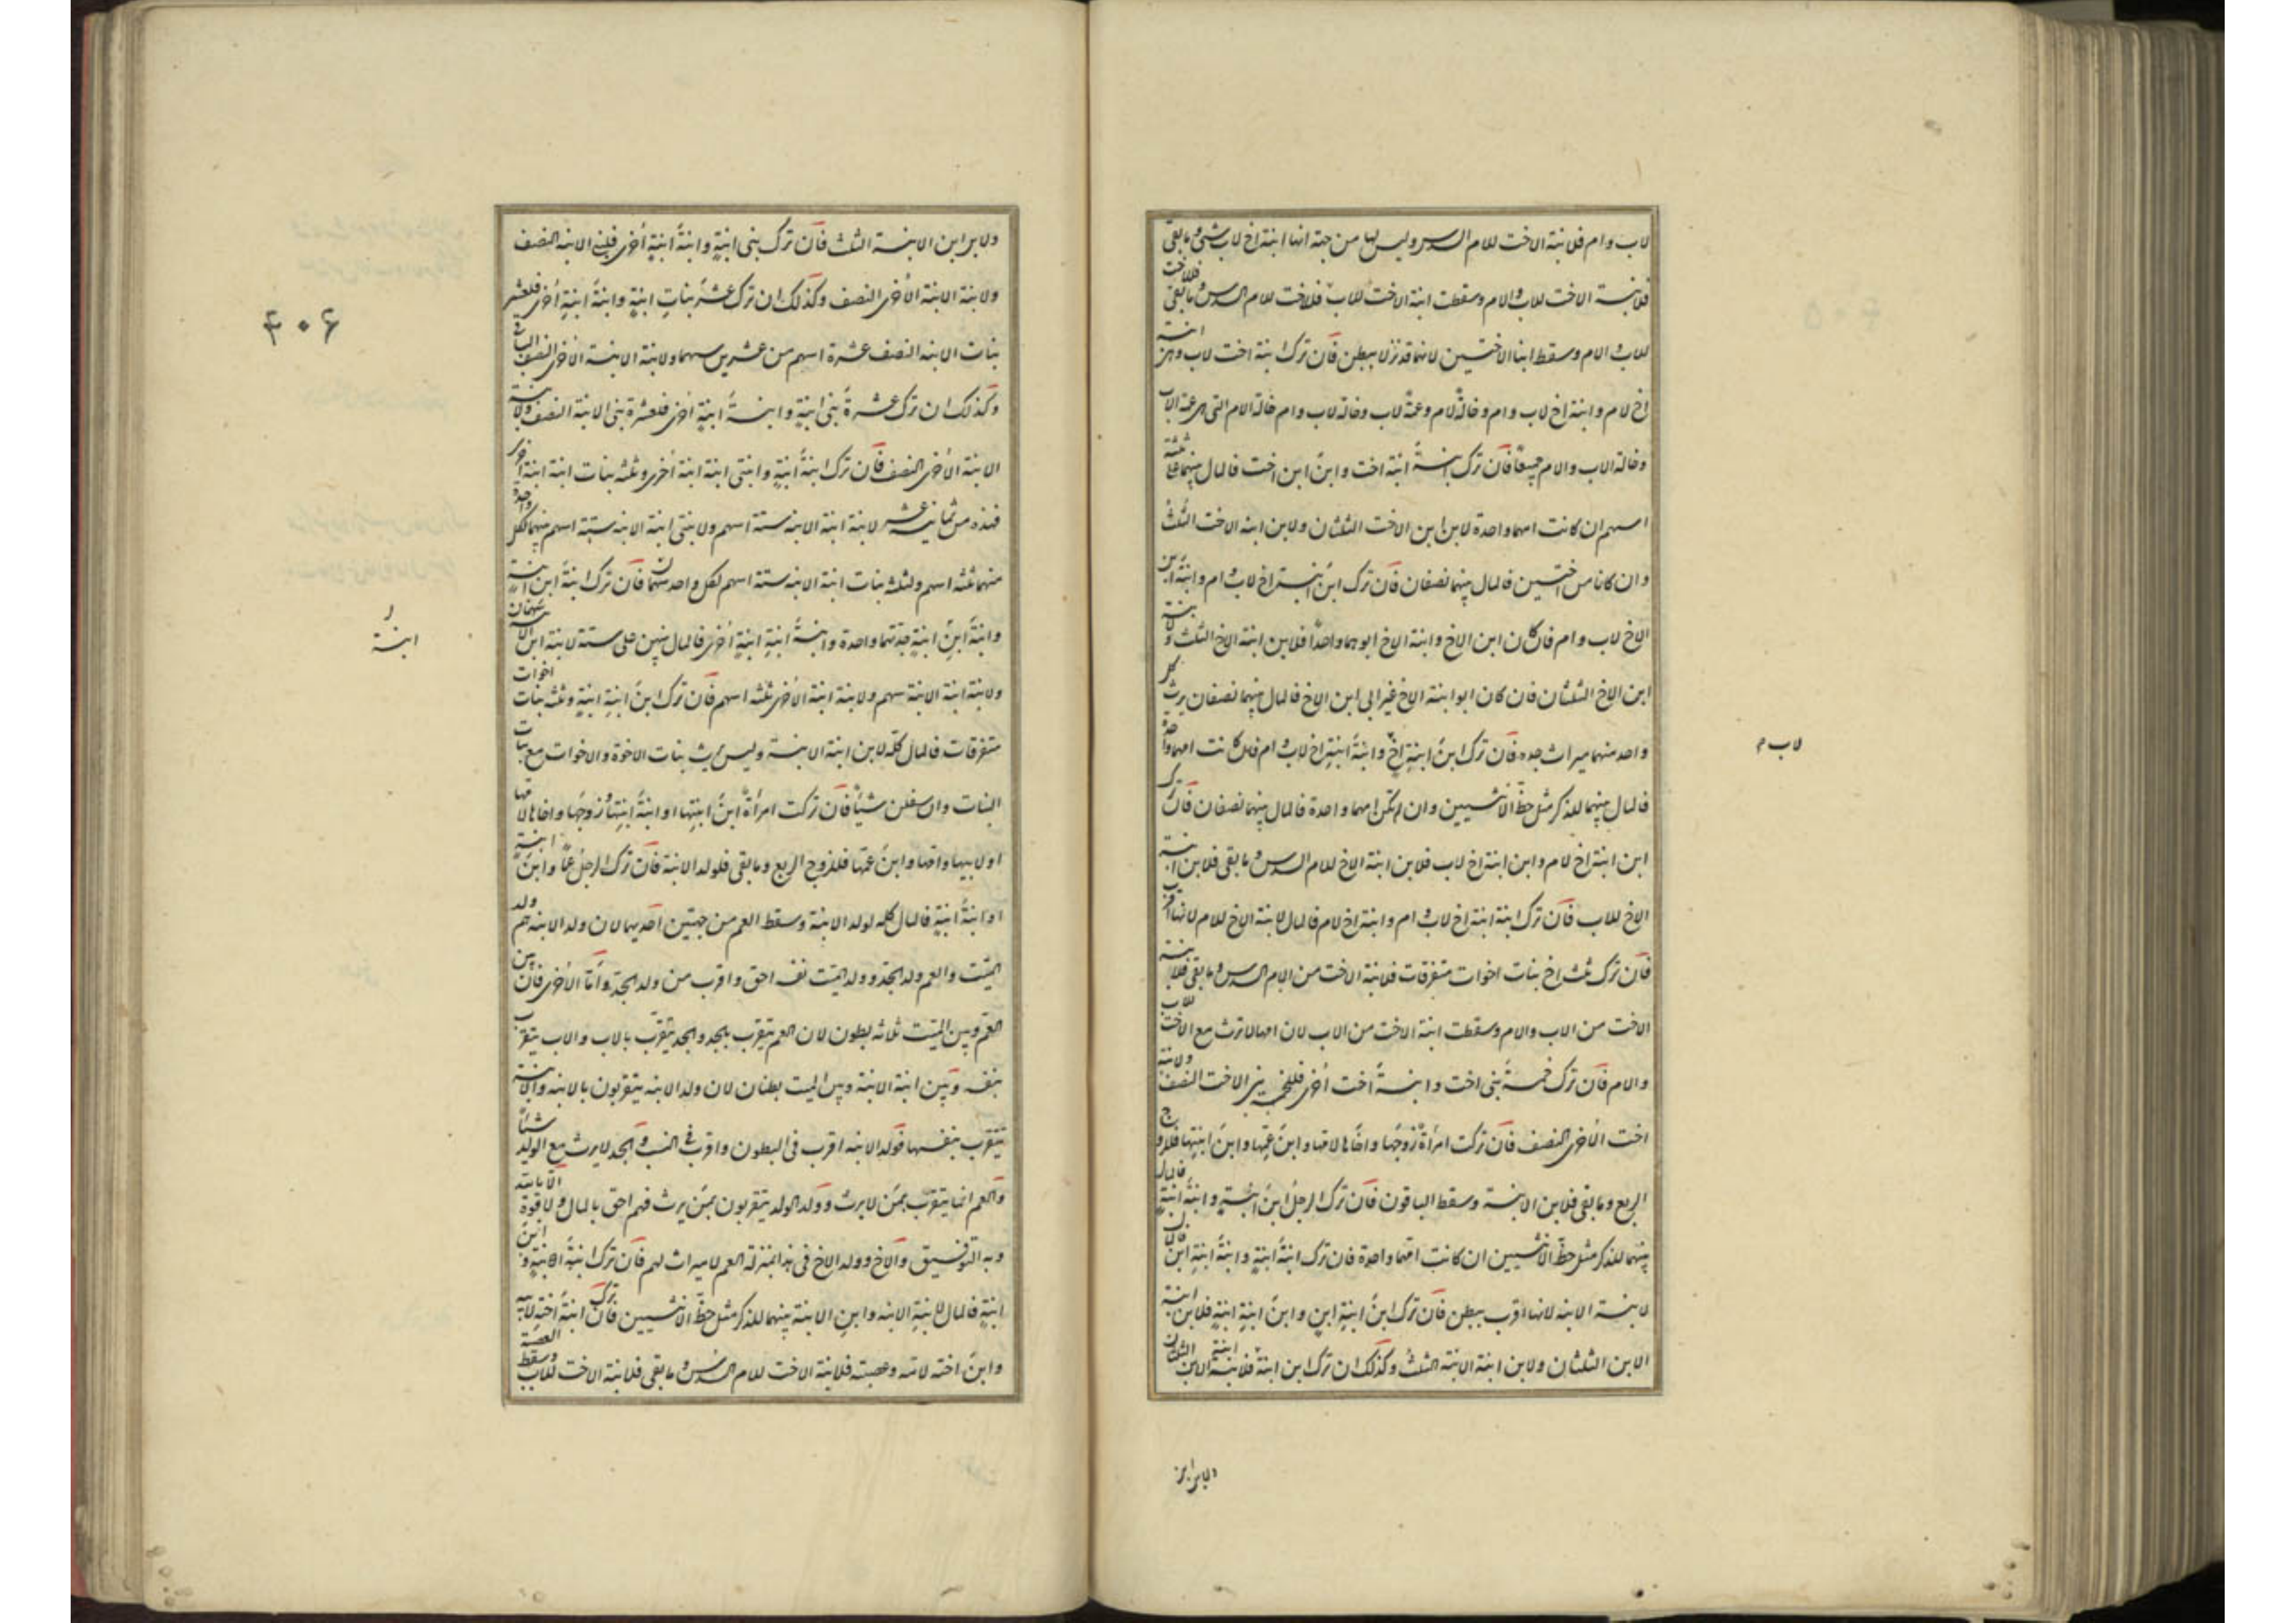 لاب وام فلابنة الاخت للام السدس وليس لها من جهة انها ابنة اخ لاب شئ وما بقى
فلابنة الاخت للاب والام وسقطت ابنة الاخت للاب فللاخت للام السدس وما بقى فللاخت
للاب والام وسقط ابنا الاختين لانهما قد نزلا ببطن فان ترك ابنة اخت لاب وام وابنة
اخ لام وابنة اخ لاب وام وخالة لام وعمة لاب وخالة لاب وام خالة الام التى هى عمة الاب
وخالة الاب والام جميعا فان ترك ابنة ابنة اخت وابن ابن اخت فالمال بينهما على ثلثة
اسهم ان كانت امهما واحدة لابن ابن الاخت الثلثان ولابن ابنة الاخت الثلث
وان كانا من اختين فالمال بينهما نصفان فان ترك ابن ابنة اخ لاب وام وابنة ابن
الاخ لاب وام فان كان ابن الاخ وابنة الاخ ابوهما واحدا فلابن ابنة الاخ الثلث ولابنة
ابن الاخ الثلثان فان كان ابو ابنة الاخ غير ابى ابن الاخ فالمال بينهما نصفان يرث كل
واحد منهما ميراث جده فان ترك ابن ابنة اخ وابنة ابنة اخ لاب وام فان كانت امهما واحدة
لاب م
فالمال بينهما للذكر مثل حظ الانثيين وان لم تكن امهما واحدة فالمال بينهما نصفان فان ترك
ابن ابنة اخ لام وابن ابنة اخ لاب فلابن ابنة الاخ للام السدس وما بقى فلابن ابنة
الاخ للاب فان ترك ابنة ابنة اخ لاب وام وابنة اخ لام فالمال لابنة الاخ للام لانها اقرب
فان ترك ثلث اخ بنات اخوات متفرقات فلابنة الاخت من الام السدس وما بقى فلابنة
الاخت من الاب والام وسقطت ابنة الاخت من الاب لان امها لا ترث مع الاخت للاب
والام فان ترك خمسة بنى اخت وابنة اخت اخرى فلخمسة بنى الاخت النصف ولابنة
اخت الاخرى النصف فان تركت امراة زوجها واخاها لامها وابن عمها وابن ابنتها فللزوج
الربع وما بقى فلابن الابنة وسقط الباقون فان ترك الرجل ابن ابنة وابنة ابنة فالمال
بينهما للذكر مثل حظ الانثيين ان كانت امهما واحدة فان ترك ابنة ابنة وابنة ابنة ابن فالمال
لابنة الابنة لانها اقرب ببطن فان ترك ابن ابنة ابن وابن ابنة ابنة فلابن ابنة
الابن الثلثان ولابن ابنة الابنة الثلث وكذلك ان ترك ابن ابنة فلابنة الابن الثلثان
ولابن ابن الابنة الثلث فان ترك بنى ابنة وابنة ابنة اخرى فلبنى الابنة النصف
ولابنة الابنة الاخرى النصف وكذلك ان ترك عشر بنات ابنة وابنة ابنة اخرى فلعشر
٤٠٤
بنات الابنة النصف عشرة اسهم من عشرين سهما ولابنة الابنة الاخرى النصف الباقى
وكذلك ان ترك عشرة بنى ابنة وابنة ابنة اخرى فلعشرة بنى الابنة النصف ولابنة
الابنة الاخرى النصف فان ترك ابنة ابنة وابنتى ابنة ابنة اخرى وثلثه بنات ابنة ابنة اخرى
فهذه من ثمانية عشر لابنة ابنة الابنة ستة اسهم ولابنتى ابنة الابنة ستة اسهم منهما لكل واحدة
منهما ثلثه اسهم ولثلثه بنات ابنة الابنة ستة اسهم لكل واحد سهمان فان ترك ابنة ابن ابنة
وابنة ابن ابنة جدتهما واحدة وابنة ابنة ابنة اخرى فالمال بينهن على ستة لابنة ابن الابنة سهمان
ابنة
ولابنة ابنة الابنة سهم ولابنة ابنة الاخرى ثلثه اسهم فان ترك ابن ابنة ابنة وثلثه بنات اخوات
متفرقات فالمال كله لابن ابنة الابنة وليس يرث بنات الاخوة والاخوات مع بنات
البنات وان سفلن شيئا فان تركت امراة ابن ابنتها او ابنة ابنتها وزوجها واخاها لامها
او لابيها وامها وابن عمها فللزوج الربع وما بقى فلولد الابنة فان ترك الرجل عما وابن ابنة
او ابنة ابنة فالمال كله لولد الابنة وسقط العم من جهتين احديهما لان ولد الابنة هم ولد
الميت والعم ولد الجد وولد الميت نفسه احق واقرب من ولد الجد واما الاخرى فان بين
العم وبين الميت ثلاثه بطون لان العم يتقرب بالجد والجد يتقرب بالاب والاب يتقرب
بنفسه وبين ابنة الابنة وبين الميت بطنان لان ولد الابنة يتقربون بالابنة والابنة
تتقرب بنفسها فولد الابنة اقرب فى البطون واقرب فى النسب والجد لا يرث مع الولد شيئا
والعم انما يتقرب بمن لا يرث وولد الولد يتقربون بمن يرث فهم احق بالمال ولا قوة الا بالله
وبه التوفيق والاخ وولد الاخ فى هذا بمنزلة العم لا ميراث لهم فان ترك ابنة ابنة وابن
ابنة فالمال لابنة الابنة وابن الابنة بينهما للذكر مثل حظ الانثيين فان ترك ابنة اخته لابيه
وابن اخته لامه وعصبته فلابنة الاخت للام السدس وما بقى فلابنة الاخت للاب وسقط العصبة